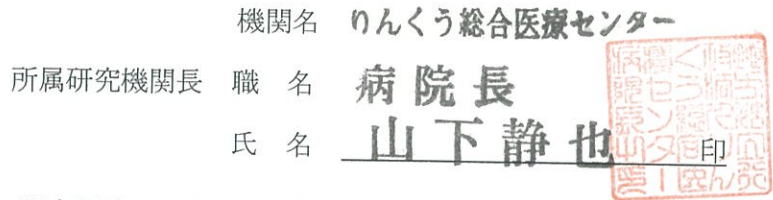 機関名 りんくう総合医療センター
所属研究機関長 職 名 病院長
氏 名 山下静也 印